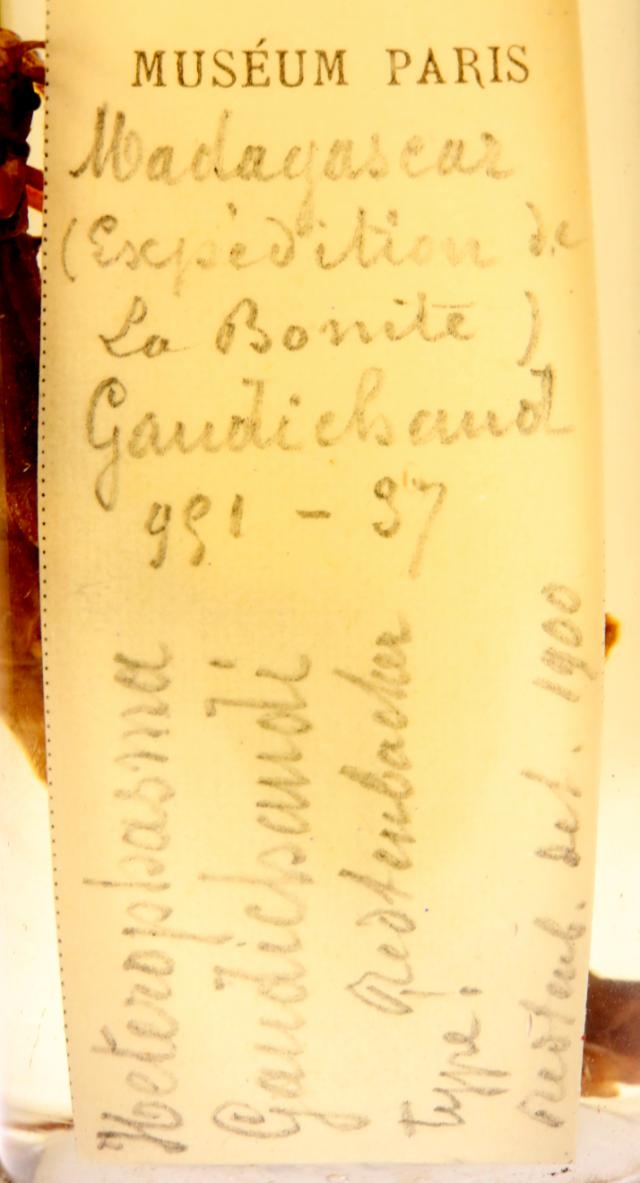 MUSÉUM PARIS
Madagascar
(Expédition de
La Bonite)
Gaudichaud
991 - 37
Heterophasma
Gaudichaudi
Redtenbacher
type!
Redtenb. det. 1900